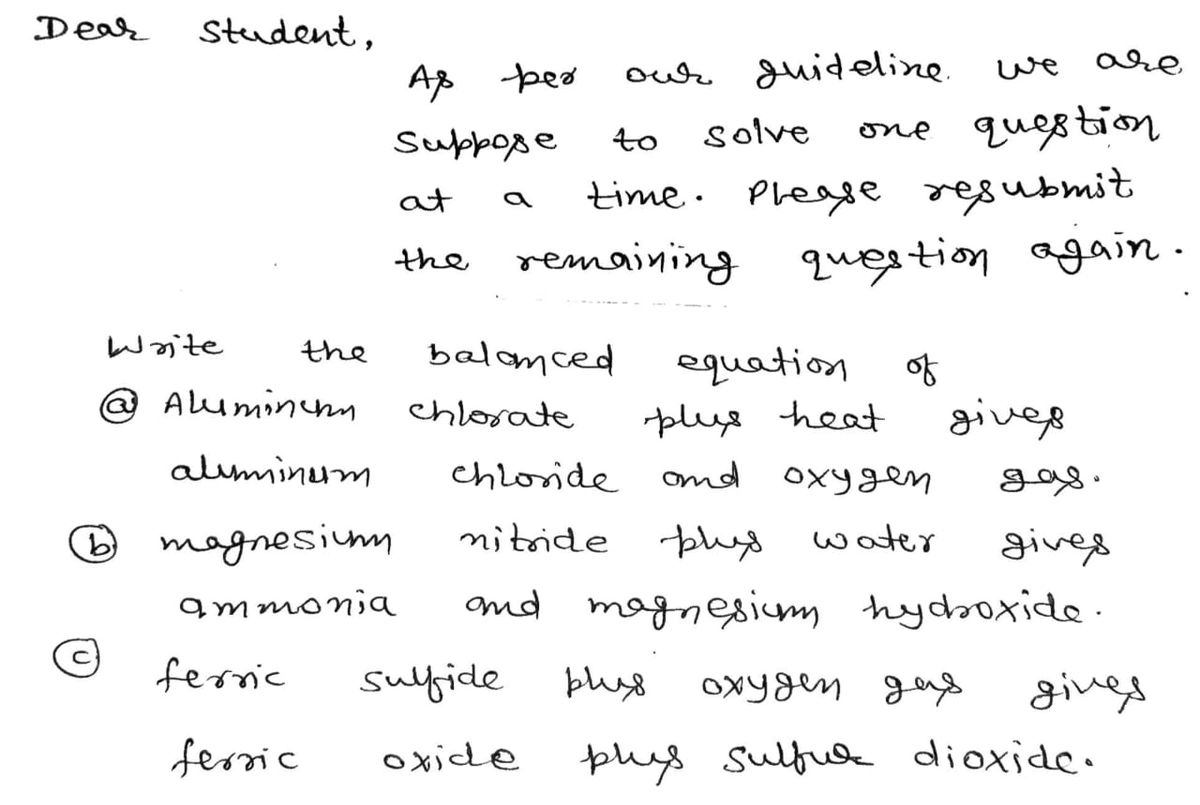 Dear Student,
As per our guideline we are
suppose to solve one question
at a time. Please resubmit
the remaining question again.
Write the balanced equation of
(a) Aluminum chlorate plus heat gives
aluminum chloride and oxygen gas.
(b) magnesium nitride plus water gives
ammonia and magnesium hydroxide.
(c) ferric sulfide plus oxygen gas gives
ferric oxide plus sulfur dioxide.